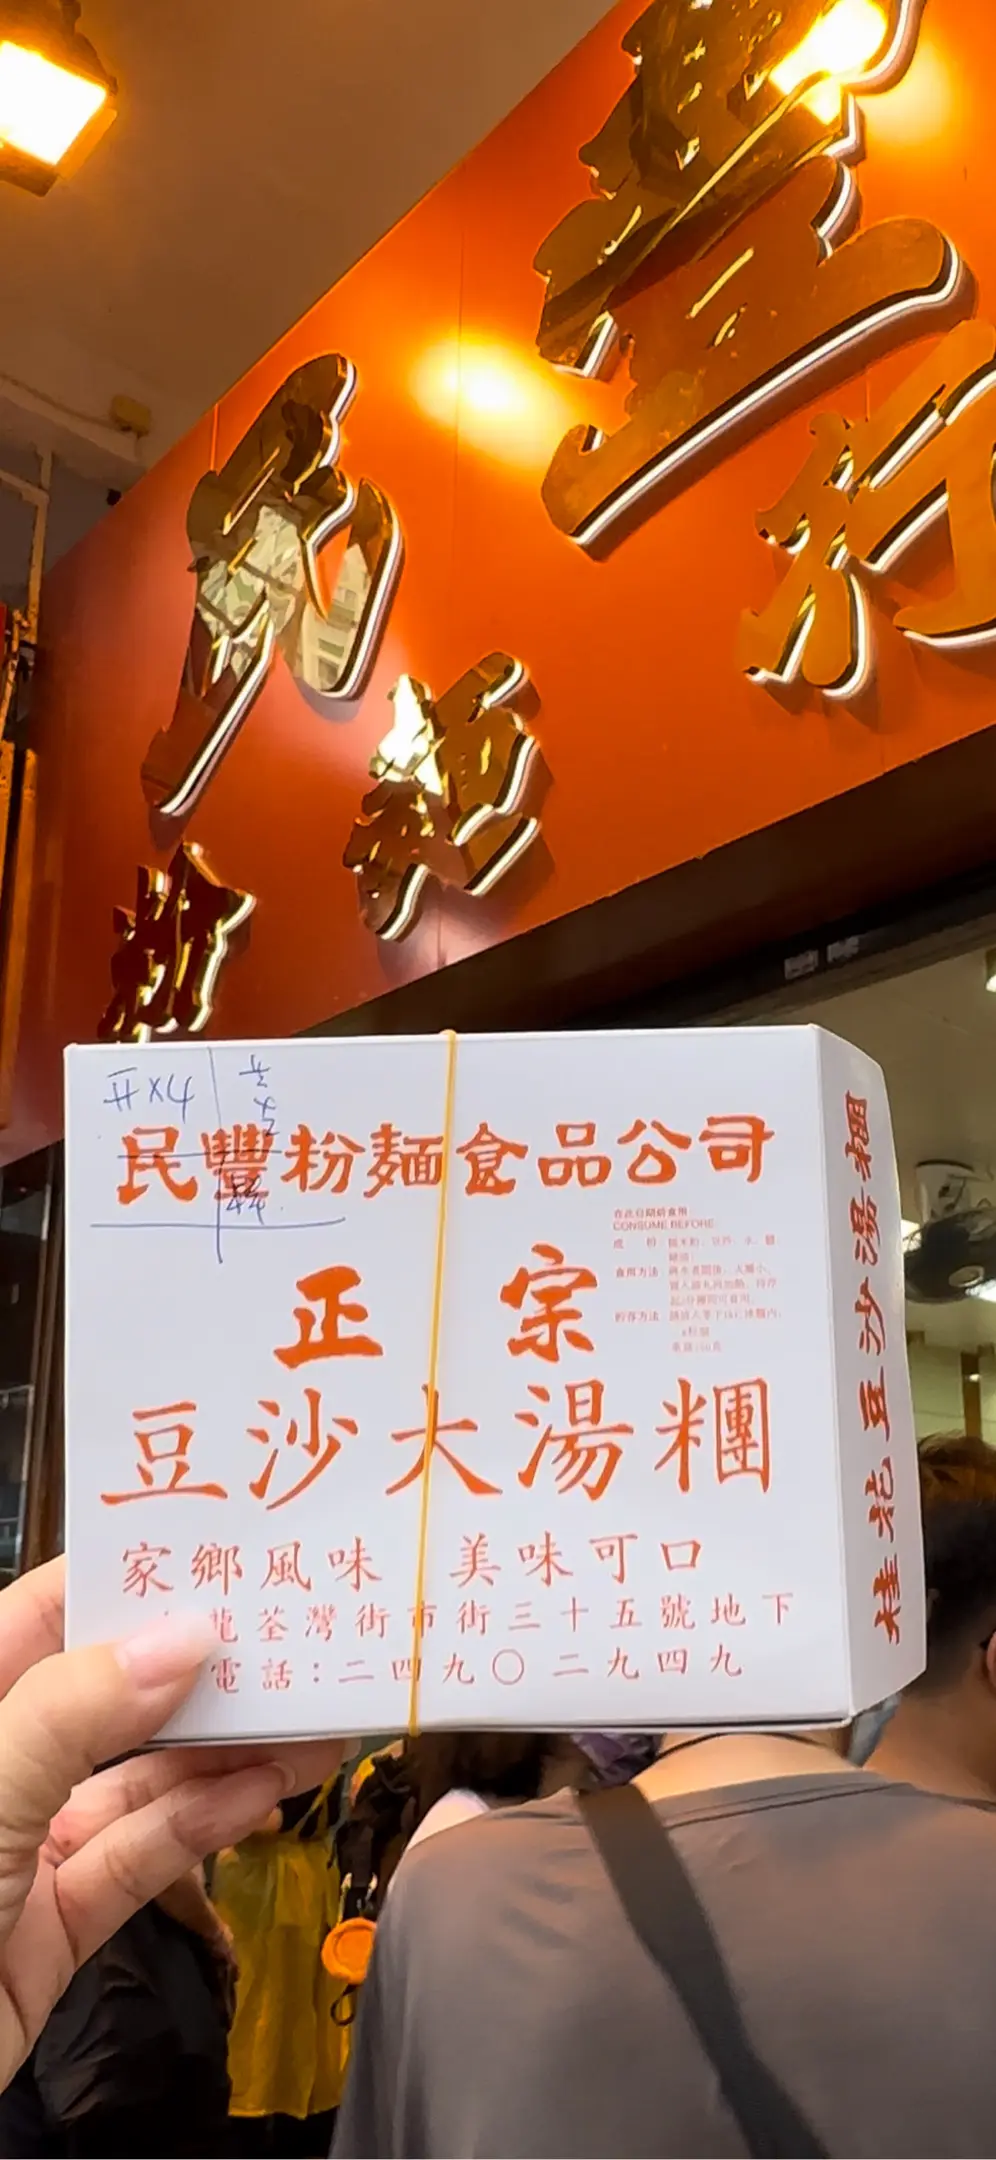 民豐行
粉麵
民豐粉麵食品公司
正宗
豆沙大湯糰
家鄉風味 美味可口
龍荃灣街市街三十五號地下
電話：二四九〇二九四九
在此日期前食用
CONSUME BEFORE:
食用方法
貯存方法
桂花豆沙湯糰
X4